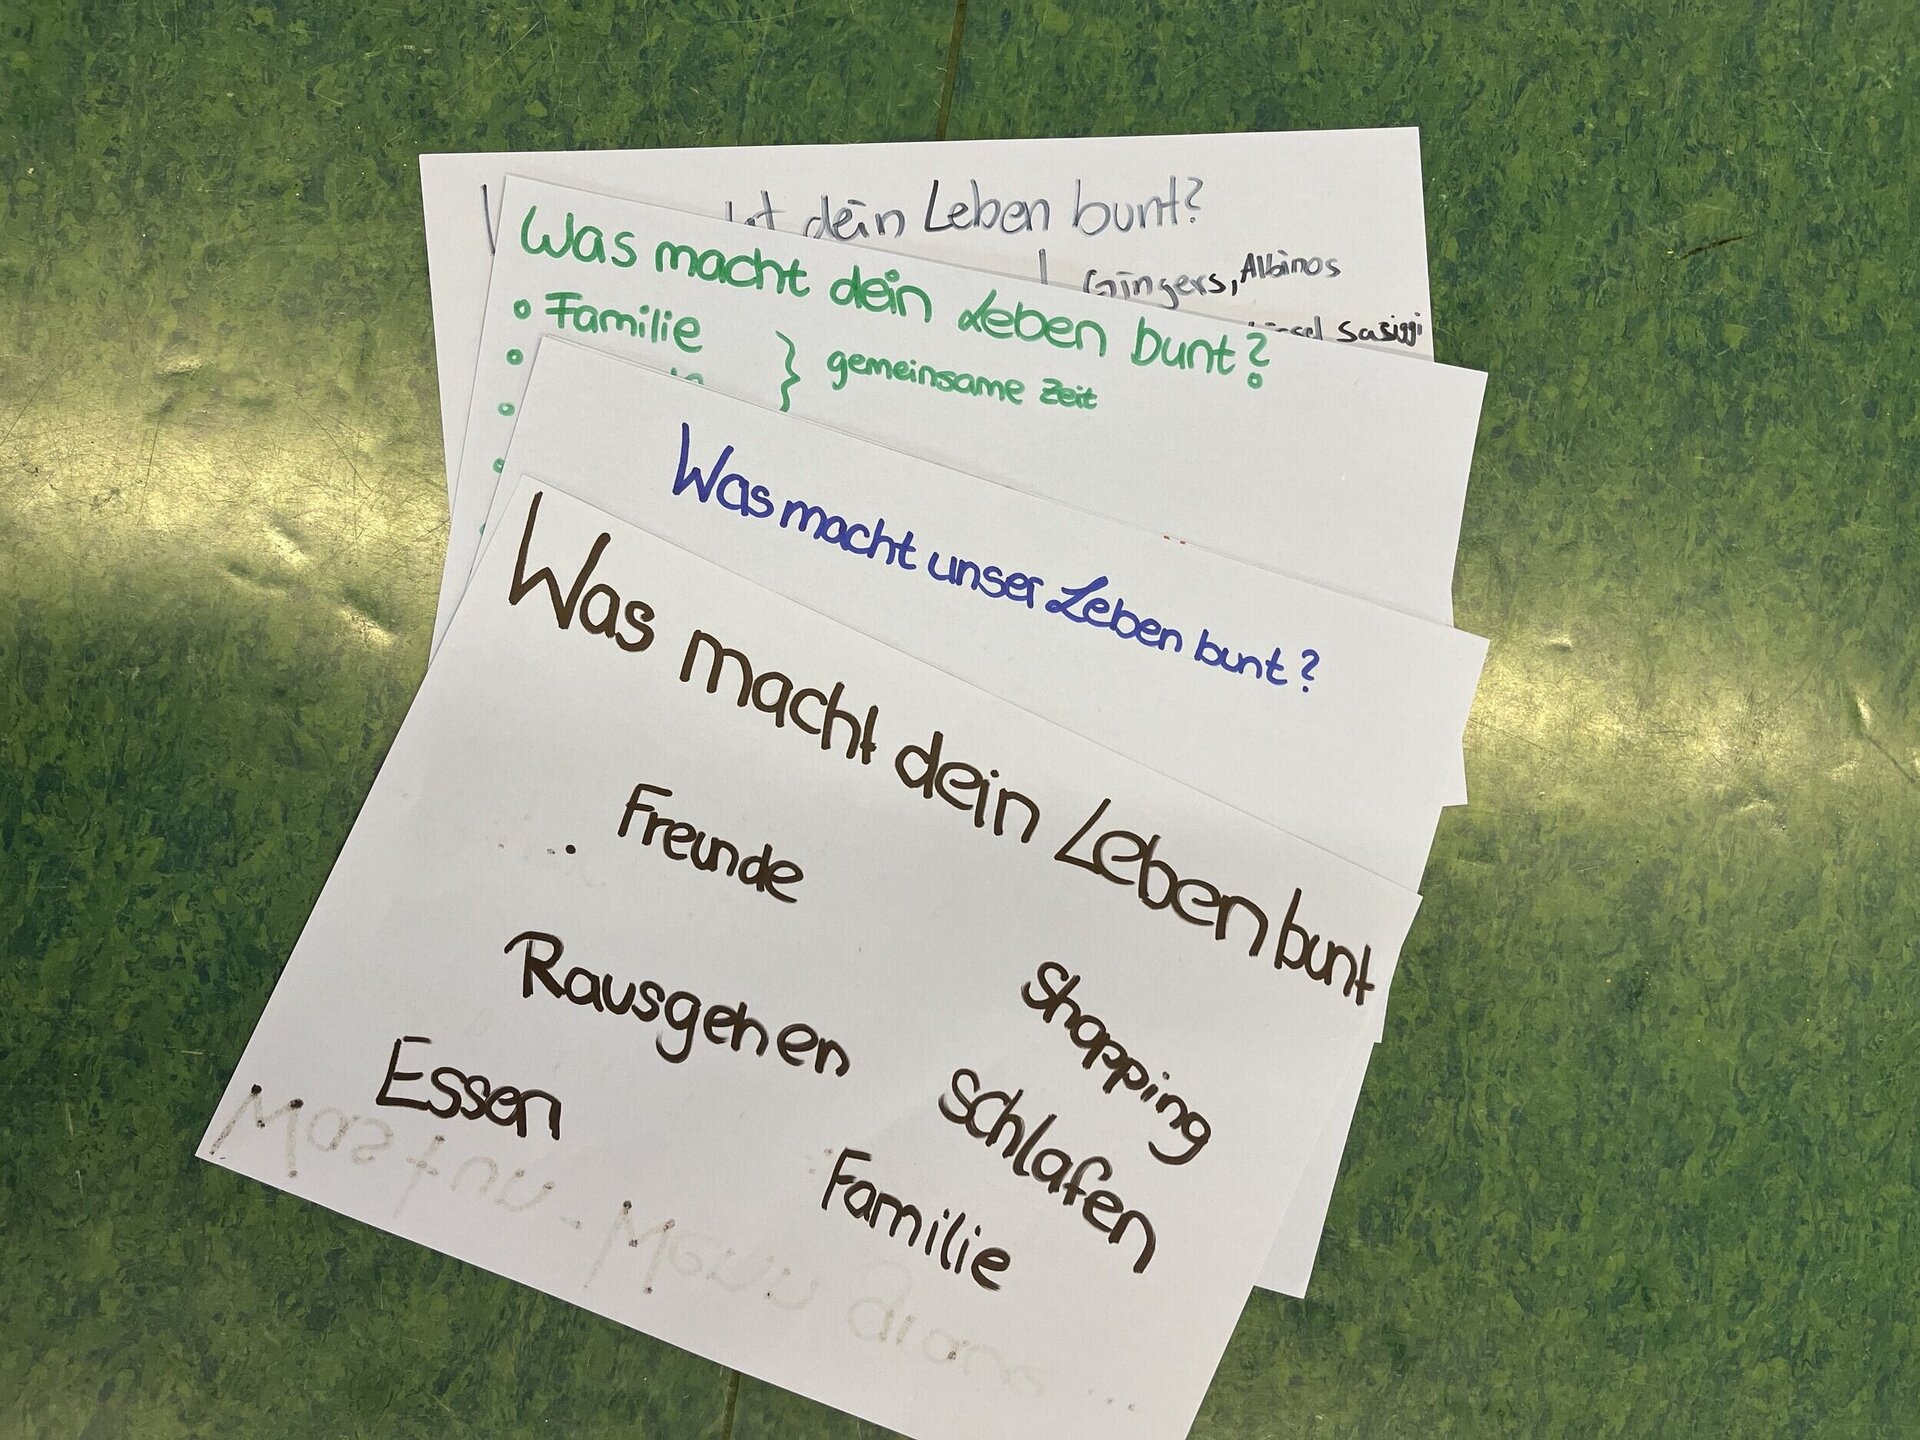 dein Leben bunt?
Gingers, Albinos
Was macht dein Leben bunt?
Familie
gemeinsame Zeit
Was macht unser Leben bunt?
Was macht dein Leben bunt
Freunde
Rausgehen
Essen
Shopping
Schlafen
Familie